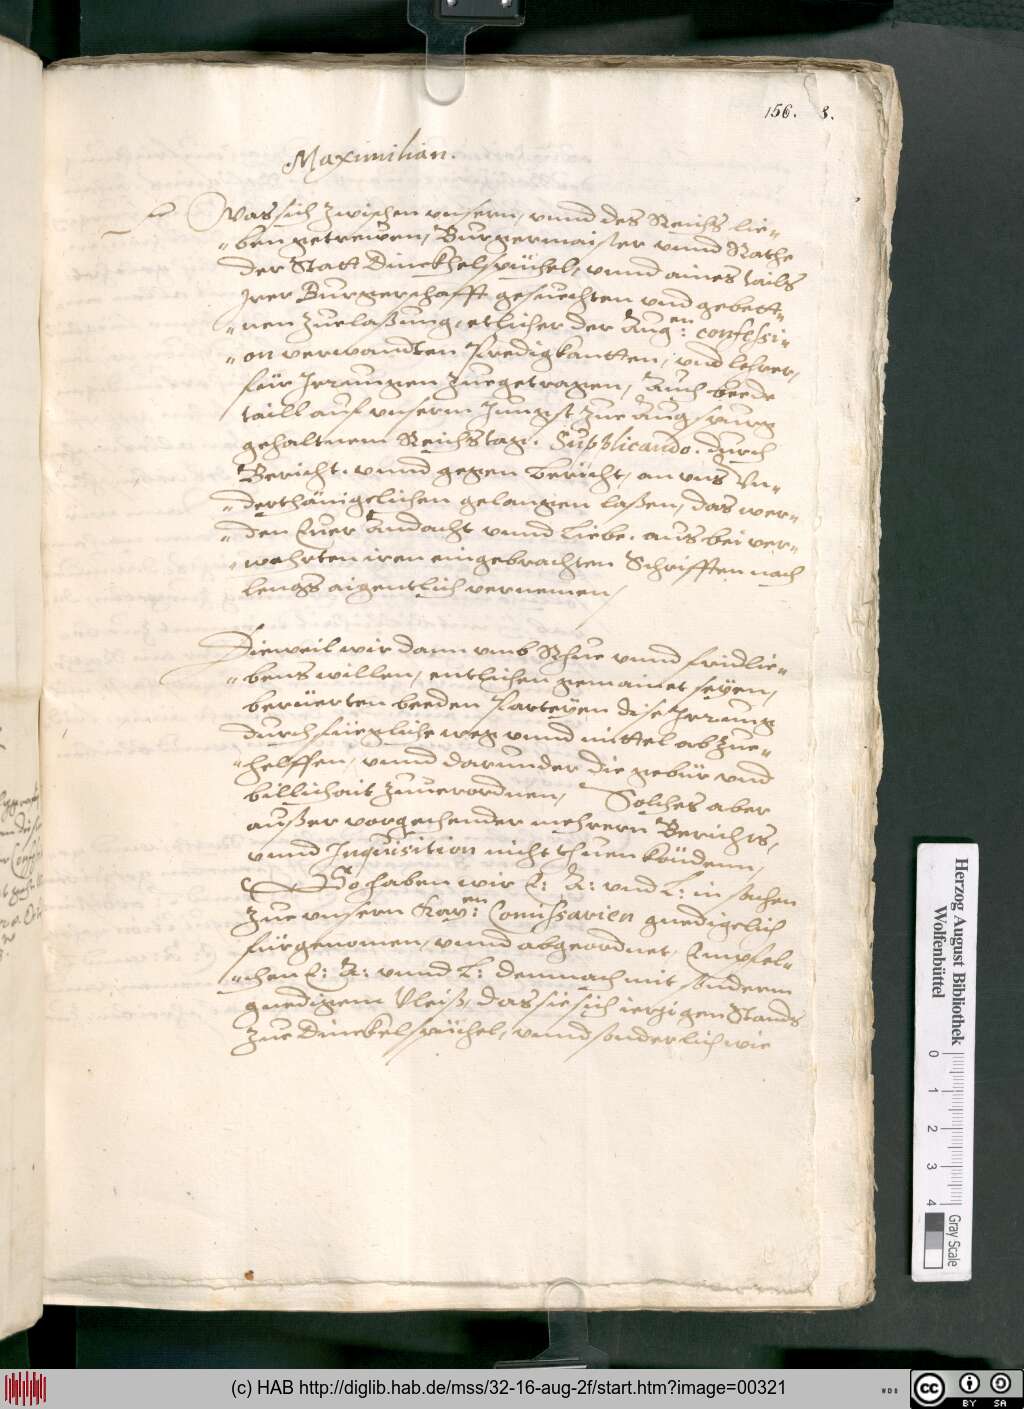 156. 8.
Maximilian.
Was sich zwischen vnsern, vnnd des Reichs lie-
-ben getrewen, Burgermaister vnnd Rathe
der Statt Dinckhelspühel, vnnd aines tails
Irer Burgerschafft gesuechten vnd gebett-
-nen Zuelaßung, etlicher der Aug:en confessi-
-on verwandten Predigkantten, vnd lehrer,
für Irrungen zuegetragen, Auch beede
taill auf vnserm Jungst zue Augspurg
gehaltnem Reichstag. Supplicando. durch
Bericht. vnnd gegen bericht, an vns Vn-
-derthänigelichen gelangen laßen, das wer-
-den Euer Andacht vnnd Liebe. aus bei ver-
-wahrten iren eingebrachten Schrifften nach
lengs aigentlich vernemen,
Dieweil wir dann vmb Rhue vnnd fridlie-
-bens willen, entlichen gemainet seyen,
berüerten beeden Parteyen dise Irrung
durch füegliche weg vnnd mittel abzue-
-helffen, vnnd darunder die gebür vnd
billichait zuuerordnen, Solches aber
außer vorgehender mehrern Berichts,
vnnd Inquisition nicht thuen köndenn,
So haben wir E: A: vnd L: in sachen
zue vnsern Kay:en Comissarien gnedigelich
fürgenomen, vnnd abgeordnet, Empfel-
-chen E: A: vnnd L: demnach mit sonderm
gnedigem Vleiß, das sie sich iezigen Stands
zue Dinckelspühel, vnnd sonderlich wie
Herzog August Bibliothek
Wolfenbüttel
0 1 2 3 4
Gray Scale
(c) HAB http://diglib.hab.de/mss/32-16-aug-2f/start.htm?image=00321
WDB
CC BY SA